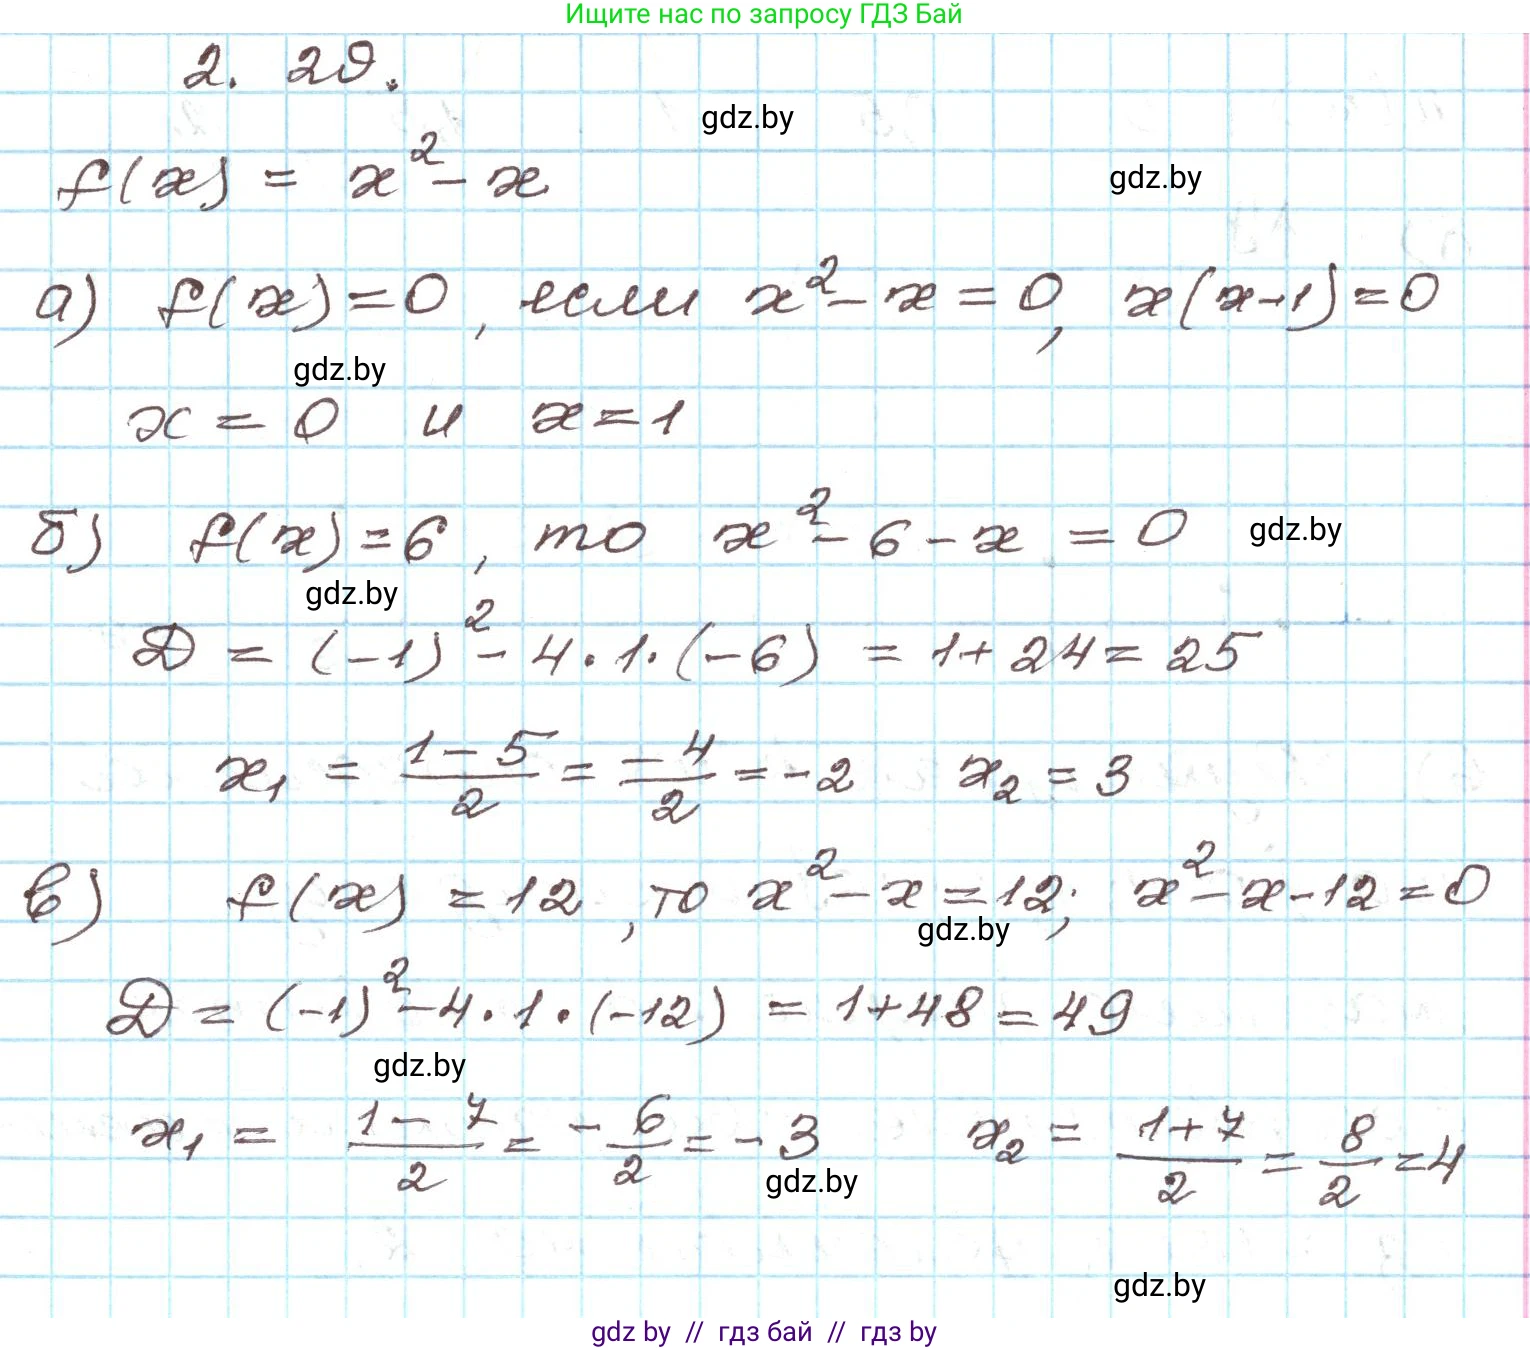 Ищите нас по запросу ГДЗ Бай
2. 29.
gdz.by
f(x) = x² - x
gdz.by
а) f(x) = 0, если x² - x = 0, x(x-1) = 0
gdz.by
x = 0 и x = 1
б) f(x) = 6, то x² - 6 - x = 0
gdz.by
gdz.by
Д = (-1)² - 4 · 1 · (-6) = 1 + 24 = 25
x₁ = (1 - 5)/2 = -4/2 = -2 x₂ = 3
в) f(x) = 12, то x² - x = 12; x² - x - 12 = 0
gdz.by
Д = (-1)² - 4 · 1 · (-12) = 1 + 48 = 49
gdz.by
x₁ = (1 - 7)/2 = - 6/2 = - 3 x₂ = (1 + 7)/2 = 8/2 = 4
gdz.by
gdz.by
gdz by // гдз бай // гдз by